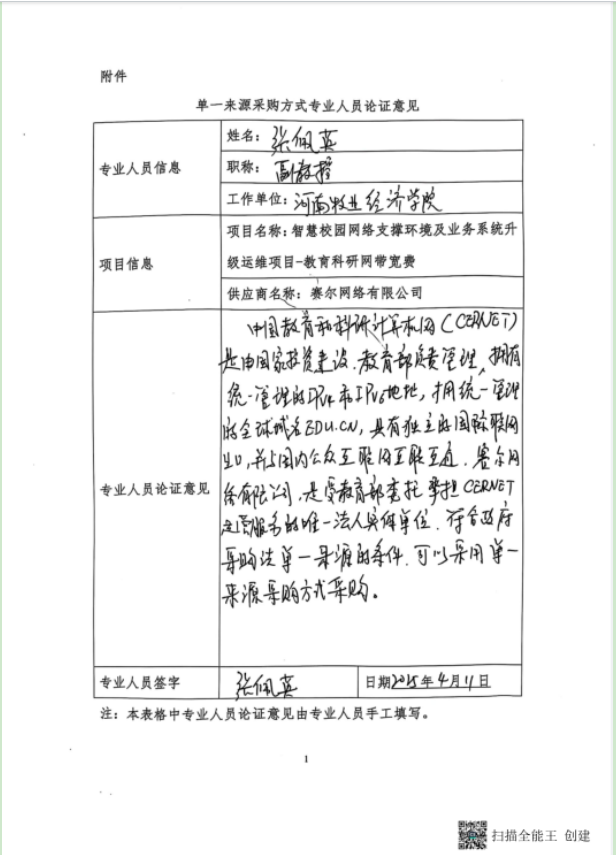 附件
单一来源采购方式专业人员论证意见
专业人员信息
姓名：张佩英
职称：副教授
工作单位：河南牧业经济学院
项目信息
项目名称：智慧校园网络支撑环境及业务系统升
级运维项目-教育科研网带宽费
供应商名称：赛尔网络有限公司
专业人员论证意见
中国教育和科研计算机网（CERNET）
是由国家投资建设、教育部负责管理，拥有
统一管理的IPv4和IPv6地址，拥统一管理
的全球域名EDU.CN，具有独立的国际联网
出口，并与国内公众互联网互联互通．赛尔网
络有限公司，是受教育部委托 承担CERNET
运营服务的唯一法人实体单位．符合政府
采购法单一来源的条件．可以采用单一
来源采购方式采购。
专业人员签字
张佩英
日期2025年4月11日
注：本表格中专业人员论证意见由专业人员手工填写。
1
扫描全能王 创建